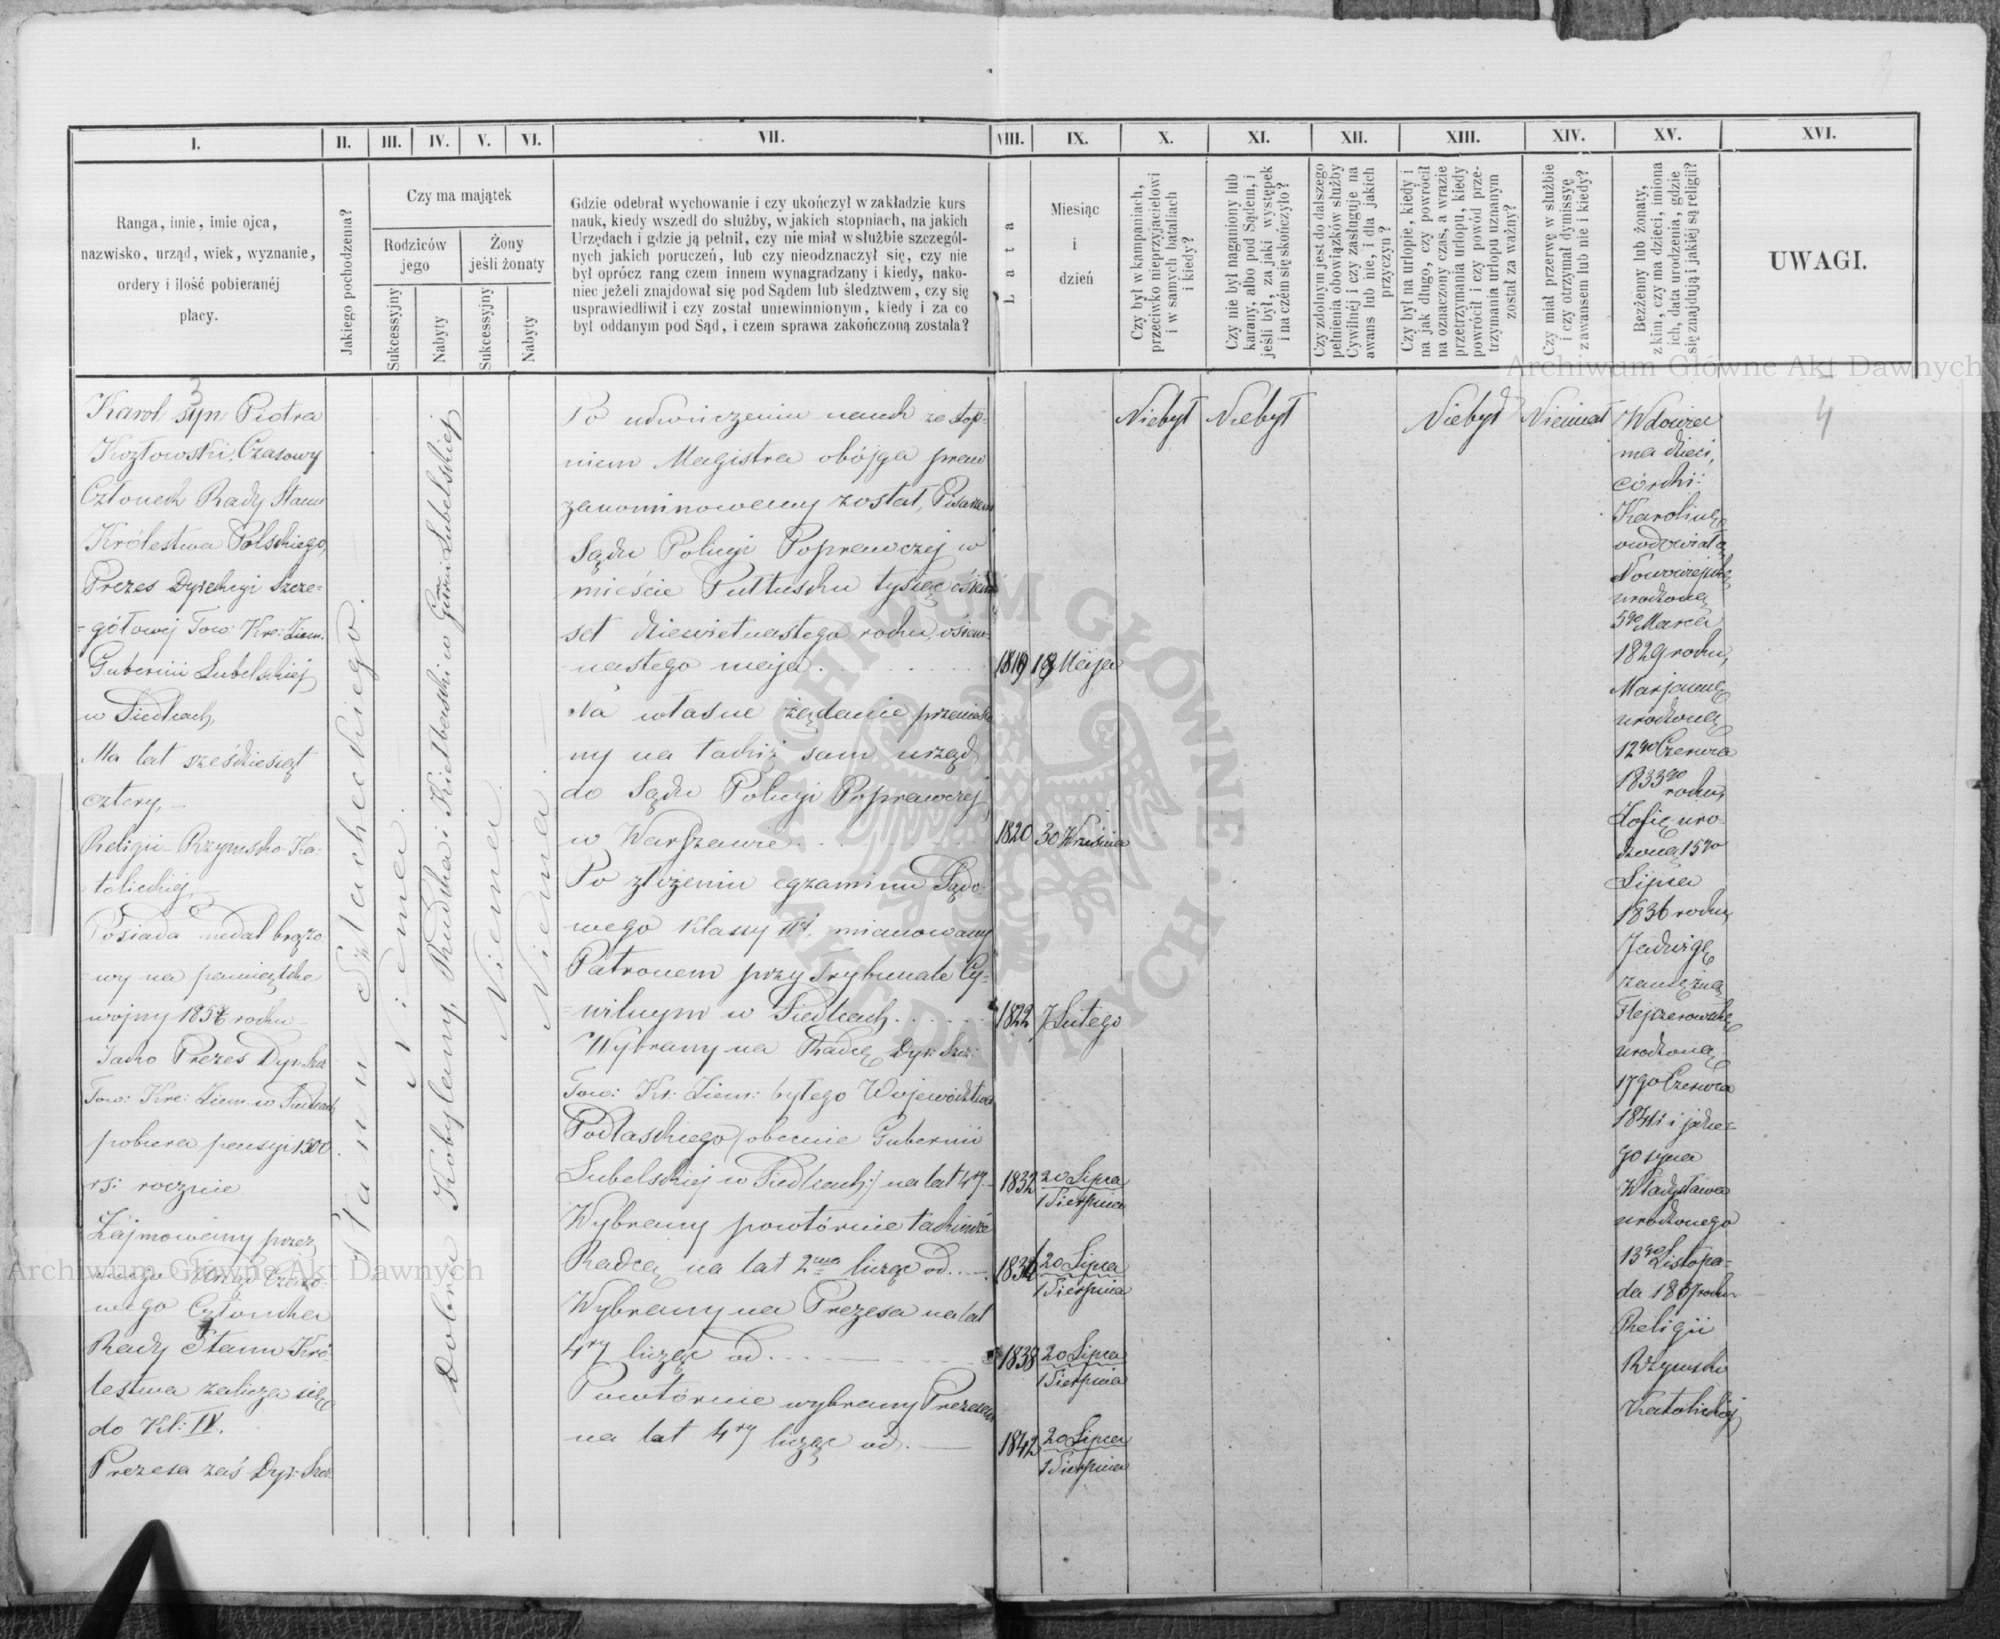 I. II. III. IV. V. VI. VII. VIII. IX. X. XI. XII. XIII. XIV. XV. XVI.
Ranga, imie, imie ojca,
nazwisko, urząd, wiek, wyznanie,
ordery i ilość pobieranéj
płacy.
Jakiego pochodzenia?
Czy ma majątek
Rodziców
jego
Żony
jeśli żonaty
Sukcessyjny
Nabyty
Sukcessyjny
Nabyty
Gdzie odebrał wychowanie i czy ukończył w zakładzie kurs
nauk, kiedy wszedł do służby, w jakich stopniach, na jakich
Urzędach i gdzie ją pełnił, czy nie miał w służbie szczegól-
nych jakich poruczeń, lub czy nieodznaczył się, czy nie
był oprócz rang czem innem wynagradzany i kiedy, nako-
niec jeżeli znajdował się pod Sądem lub śledztwem, czy się
usprawiedliwił i czy został uniewinnionym, kiedy i za co
był oddanym pod Sąd, i czem sprawa zakończoną została?
Lata
Miesiąc
i
dzień
Czy był w kampaniach,
przeciwko nieprzyjacielowi
i w samych bataliach
i kiedy?
Czy nie był naganiony lub
karany, albo pod Sądem, i
jeśli był, za jaki występek
i na czém się skończyło?
Czy zdolnym jest do dalszego
pełnienia obowiązków służby
Cywilnéj i czy zasługuje na
awans lub nie, i dla jakich
przyczyn?
Czy był na urlopie, kiedy i
na jak długo, czy powrócił
na oznaczony czas, a w razie
przetrzymania urlopu, kiedy
powrócił i czy powód prze-
trzymania urlopu uznanym
został za ważny?
Czy miał przerwę w służbie
i czy otrzymał dymissyę
z awansem lub nie i kiedy?
Bezżenny lub żonaty,
z kim, czy ma dzieci, imiona
ich, data urodzenia, gdzie
się znajdują i jakiéj są religii?
UWAGI.
3
Karol syn Piotra
Kozłowski, Czasowy
Członek Rady Stanu
Królestwa Polskiego,
Prezes Dyrekcyi Szcze-
-gółowej Tow: Kre: Ziem:
Gubernii Lubelskiej
w Siedlcach,
Ma lat sześćdziesiąt
cztery,
Religii Rzymsko-Ka-
tolickiej,
Posiada medal brązo
-wy na pamiątkę
wojny 1856 roku
Jako Prezes Dyr: Szcz:
Tow: Kre: Ziem: w Siedlcach
pobiera pensyi 1500
rs: rocznie
Zajmowany przez
niego Urząd Czaso-
wego Członka
Rady Stanu Kró-
lestwa zalicza się
do Kl: IV.
Prezesa zaś Dyr: Szcz:
Stanu Szlacheckiego.
Niema.
Dobra Kobylany, Rudka i Kiełbaski w Gubernii Lubelskiej
Niema.
Niema.
Po ukończeniu nauk ze stop-
niem Magistra obójga praw
zanominowany został, Pisarzem
Sądu Policyi Poprawczej w
mieście Pułtusku tysiąc óśm
set dziewietnastego roku ośm-
-nastego maja . . .
Na własne żądanie przeniesio
ny na takiż sam urząd
do Sądu Policyi Poprawczej
w Warszawie . . .
Po złożeniu egzaminu Sądo-
wego Klassy IIéj, mianowany
Patronem przy Trybunale Cy-
-wilnym w Siedlcach . . .
Wybrany na Radcę Dyr: Szcz:
Tow: Kr: Ziem: byłego Województwa
Podlaskiego /obecnie Gubernii
Lubelskiej w Siedlcach:/ na lat 4ry
Wybrany powtórnie takimże
Radcą na lat 2wa licząc od . . .
Wybrany na Prezesa na lat
4ry licząc od . . .
Powtórnie wybrany Prezesem
na lat 4ry licząc od .
1819 18 Maja
1820 30 Września
1822 7 Lutego
1832 20 Lipca
1 Sierpnia
1836 20 Lipca
1 Sierpnia
1838 20 Lipca
1 Sierpnia
1842 20 Lipca
1 Sierpnia
Niebył
Niebył
Niebył
Niemiał
Wdowiec
ma dzieci,
córki:
Karolinę
owdowiałą
urodzoną
5go Marca
1829 roku,
Marjannę
urodzoną
12go Czerwca
1833go
roku,
Zofię uro-
dzoną 15go
Lipca
1836 roku,
Jadwigę
zamężną
urodzoną
17go Czerwca
1841 i jedne-
go syna
Władysława
urodzonego
13go Listopa-
da 1837 roku
Religii
Rzymsko
Katolickiej
4
Archiwum Główne Akt Dawnych
Archiwum Główne Akt Dawnych
ARCHIWUM GŁÓWNE AKT DAWNYCH